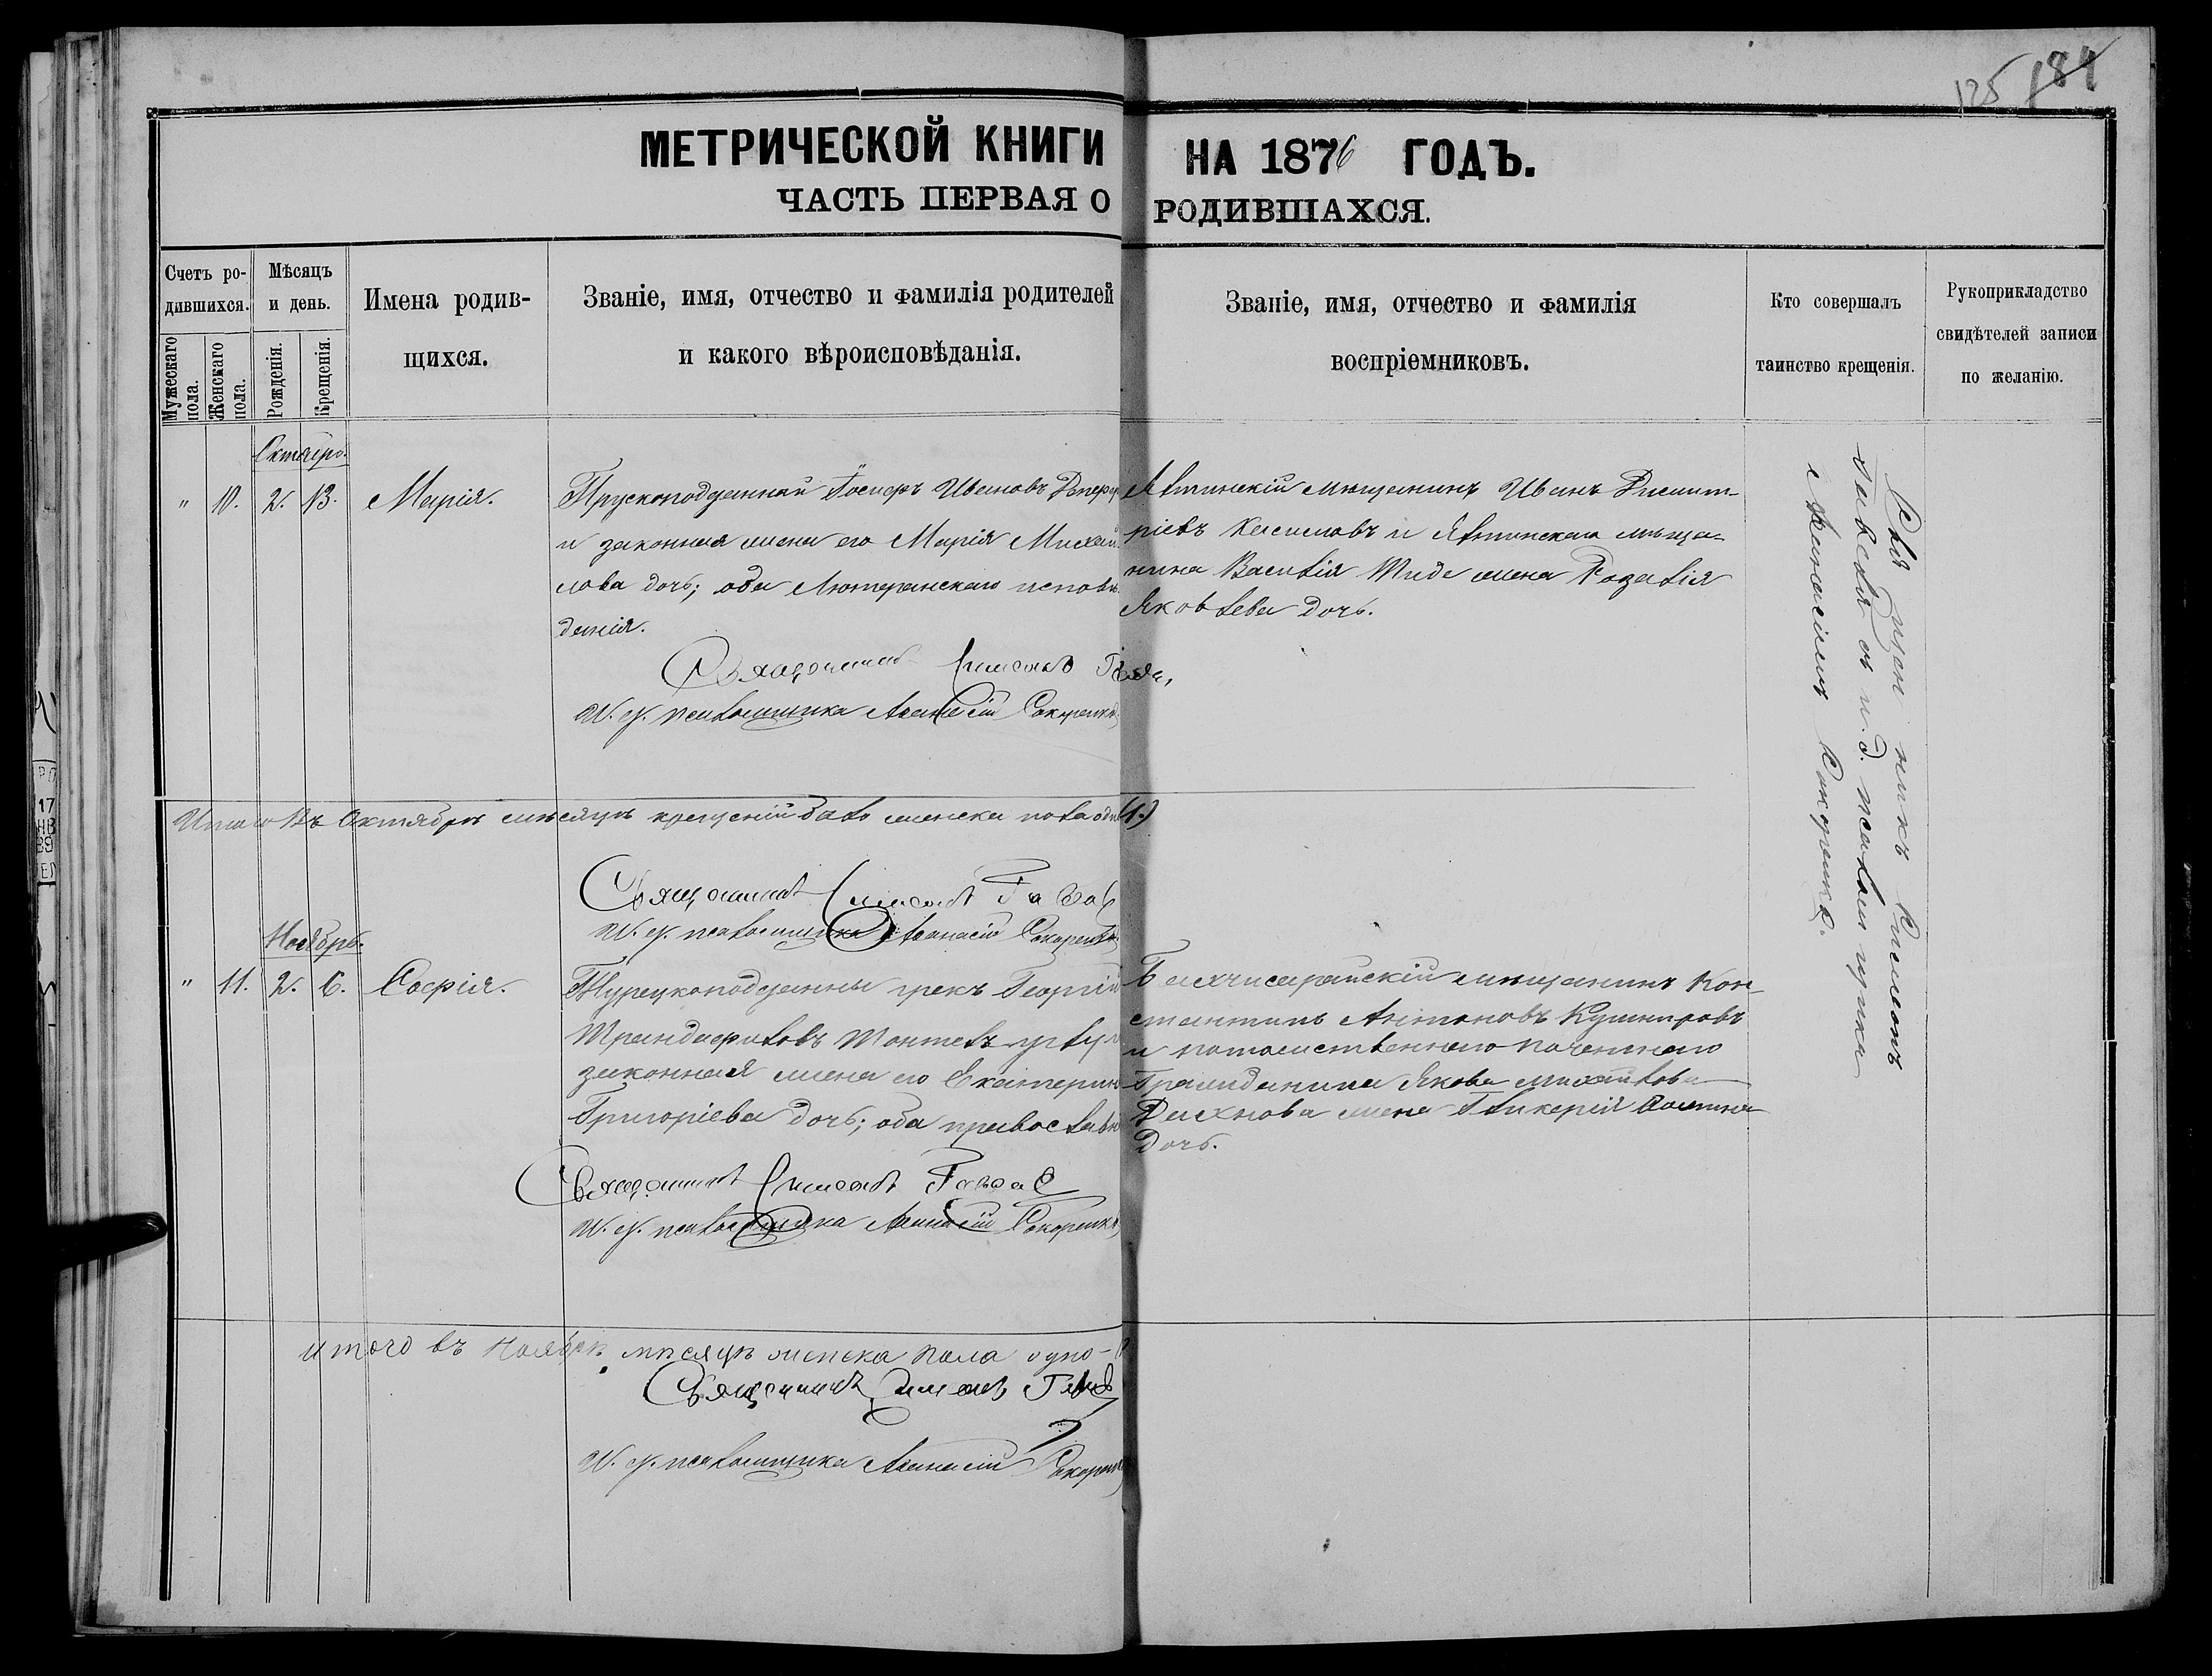 125 184
МЕТРИЧЕСКОЙ КНИГИ НА 1876 ГОДЪ.
ЧАСТЬ ПЕРВАЯ О РОДИВШАХСЯ.
Счетъ ро-
дившихся.
Мужескаго пола.
Женскаго пола.
Мѣсяцъ
и день.
Рожденія.
Крещенія.
Имена родив-
щихся.
Званіе, имя, отчество и фамилія родителей
и какого вѣроисповѣданія.
Званіе, имя, отчество и фамилія
воспріемниковъ.
Кто совершалъ
таинство крещенія.
Рукоприкладство
свидѣтелей записи
по желанію.
Октябрь.
" 10. 2. 13. Марія.
Прускоподданный Іосифъ Ивановъ
и законная жена его Марія Михай-
лова дочь; оба Лютеранскаго исповѣ-
данія.
Священникъ Симеонъ
И. д. псаломщика Афанасій Сокоренко
Ялтинскій мѣщанинъ Иванъ Димит-
ріевъ Касимовъ и Ялтинскаго мѣща-
нина Василія жена Розалія
Яковлева дочь.
Священникъ Симеонъ
съ и. д. псаломщика
Афанасіемъ Сокоренко.
Итого въ Октябрѣ мѣсяцѣ крещеній было женска пола одно (1.)
Священникъ Симеонъ
И. д. псаломщика Афанасій Сокоренко
Ноябрь.
" 11. 2. 6. Софія.
Турецкоподданный грекъ Георгій
законная жена его Екатерина
Григоріева дочь; оба православн
Священникъ Симеонъ
И. д. псаломщика Афанасій Сокоренко
Бахчисарайскій мѣщанинъ Кон-
стантинъ Антоновъ Кушнировъ
и потомственнаго почетнаго
Гражданина Якова Михайлова
жена Гликерія
дочь.
итого въ Ноябрѣ мѣсяцѣ женска пола одно-
Священникъ Симеонъ
И. д. псаломщика Афанасій Сокоренко